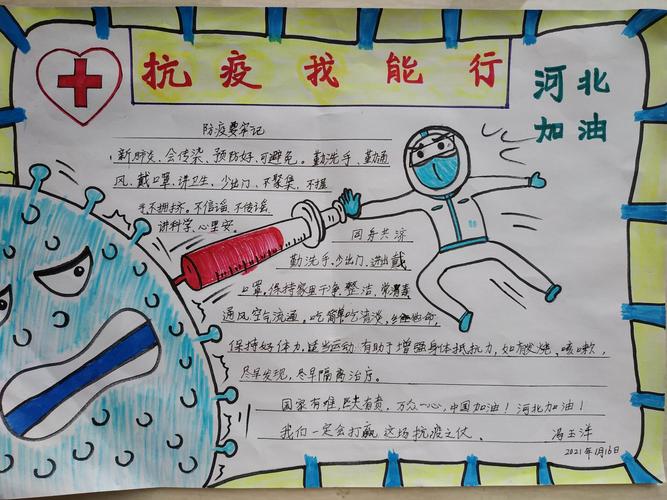 抗疫我能行
河北
加油
防疫要牢记
新肺炎、会传染、预防好、可避免。勤洗手、勤通
风、戴口罩、讲卫生、少出门、不聚集、不握
手不拥挤、不信谣、不传谣、
讲科学、心里安。
同舟共济
勤洗手、少出门、进出戴
口罩,保持家里干净、整洁,常消毒
通风空气流通。吃简单吃清淡、
保持好体力,适当运动有助于增强身体抵抗力,如发烧、咳嗽,
尽早发现,尽早隔离治疗。
国家有难,匹夫有责,万众一心,中国加油!河北加油!
我们一定会打赢这场抗疫之仗。
冯玉洋
2021年1月16日